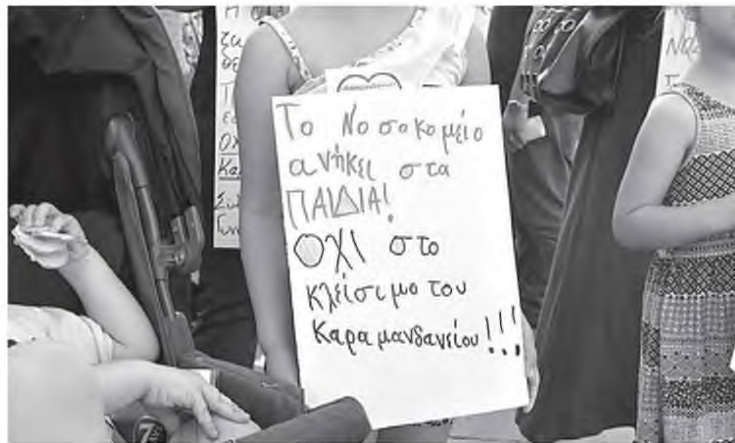 Το Νοσοκομείο
ανήκει στα
ΠΑΙΔΙΑ!
ΟΧΙ στο
κλείσιμο του
Καραμανδανείου!!!